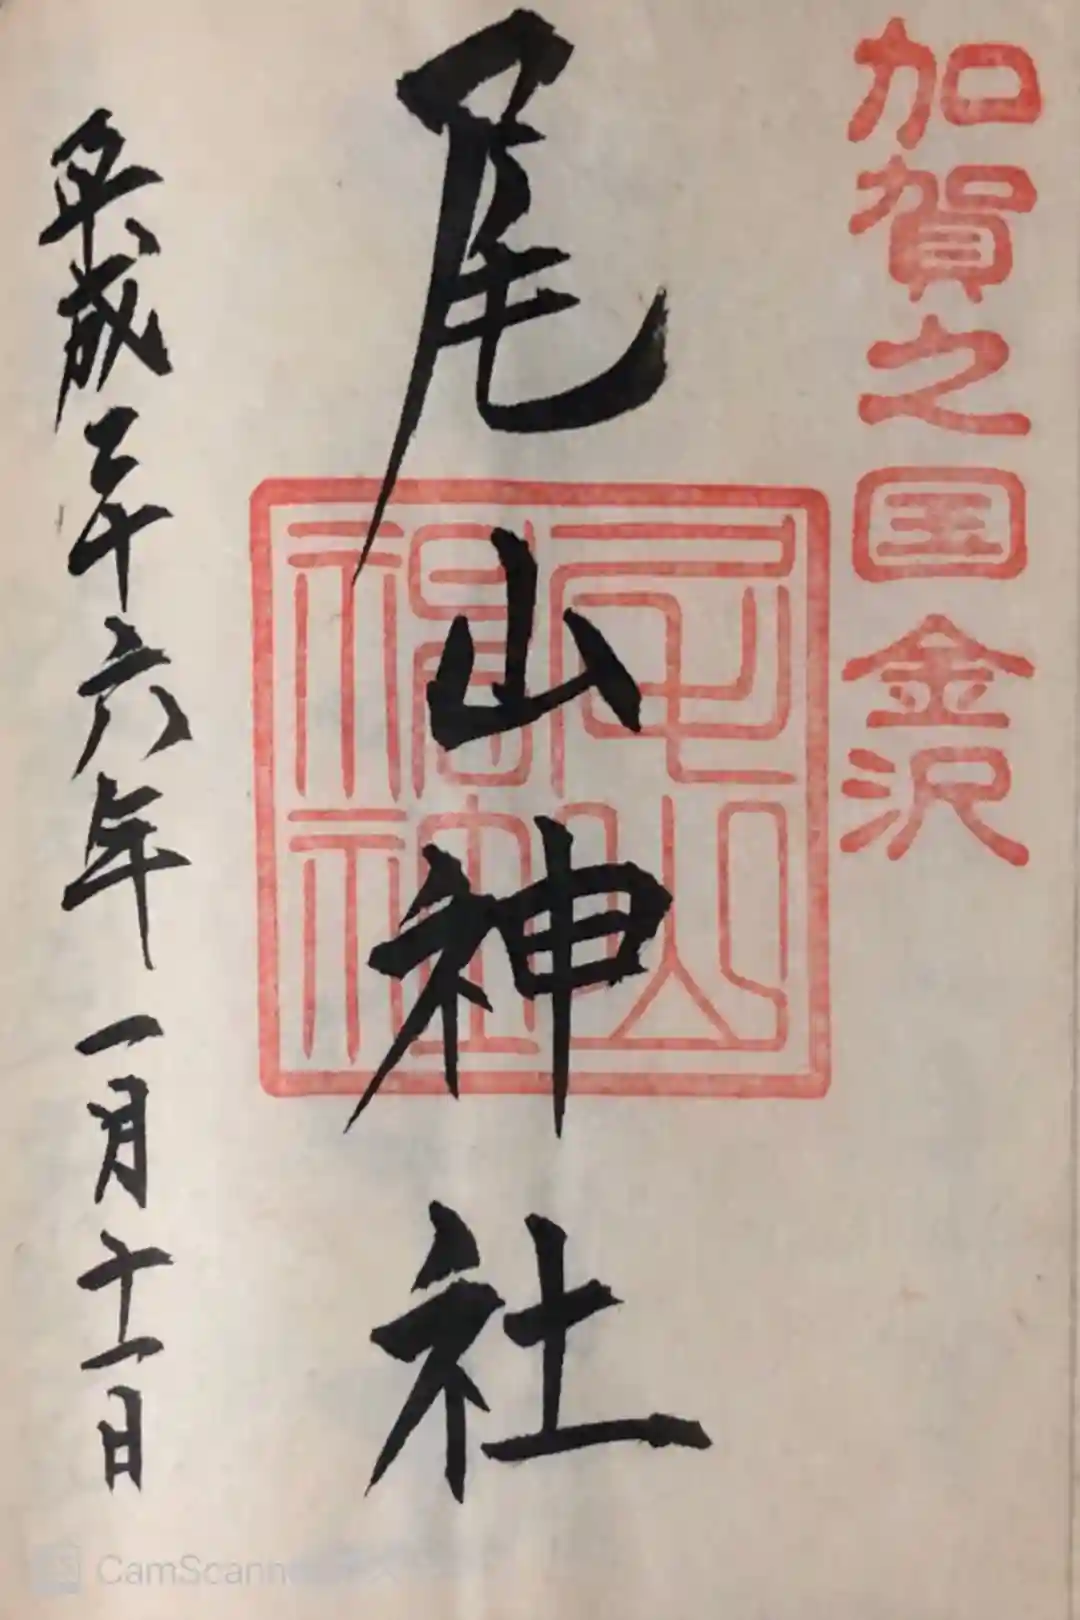 加賀之国金沢
尾山神社
尾山神社
平成二十六年一月十一日
CamScann